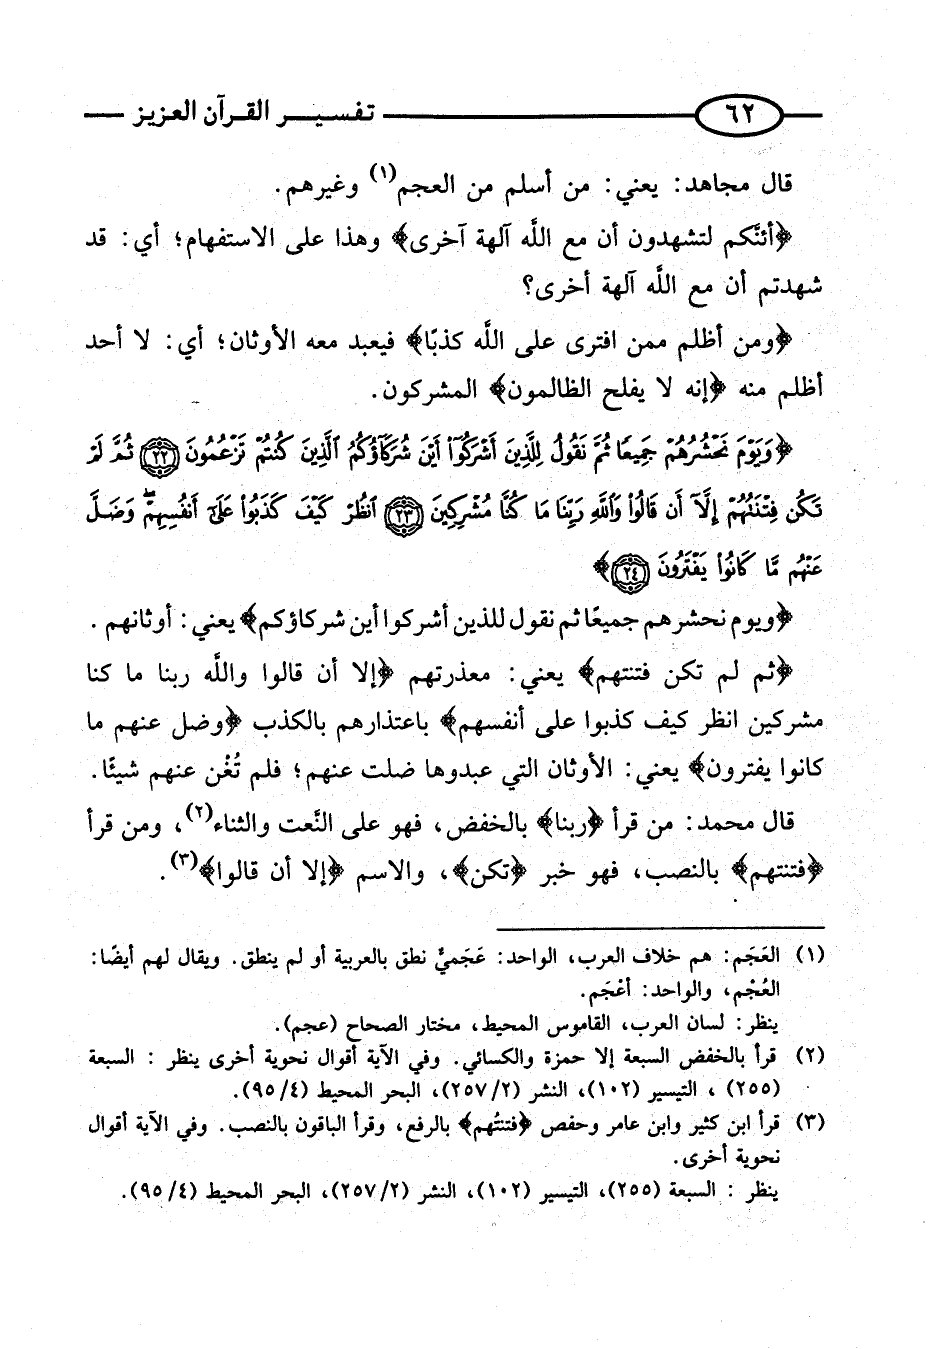 ٦٢ تفسير القرآن العزيز
قال مجاهد: يعني: من أسلم من العجم(١) وغيرهم.
﴿أئنَّكم لتشهدون أن مع اللَّه آلهة آخرى﴾ وهذا على الاستفهام؛ أي: قد
شهدتم أن مع اللَّه آلهة أخرى؟
﴿ومن أظلم ممن افترى على اللَّه كذبًا﴾ فيعبد معه الأوثان؛ أي: لا أحد
أظلم منه ﴿إنه لا يفلح الظالمون﴾ المشركون.
﴿وَيَوْمَ نَحْشُرُهُمْ جَمِيعًا ثُمَّ نَقُولُ لِلَّذِينَ أَشْرَكُوٓا۟ أَيْنَ شُرَكَآؤُكُمُ ٱلَّذِينَ كُنتُمْ تَزْعُمُونَ ٢٢ ثُمَّ لَمْ
تَكُن فِتْنَتُهُمْ إِلَّآ أَن قَالُوا۟ وَٱللَّهِ رَبِّنَا مَا كُنَّا مُشْرِكِينَ ٢٣ ٱنظُرْ كَيْفَ كَذَبُوا۟ عَلَىٰٓ أَنفُسِهِمْ ۖ وَضَلَّ
عَنْهُم مَّا كَانُوا۟ يَفْتَرُونَ ٢٤﴾
﴿ويوم نحشرهم جميعًا ثم نقول للذين أشركوا أين شركاؤكم﴾ يعني: أوثانهم .
﴿ثم لم تكن فتنتهم﴾ يعني: معذرتهم ﴿إلا أن قالوا واللَّه ربنا ما كنا
مشركين انظر كيف كذبوا على أنفسهم﴾ باعتذارهم بالكذب ﴿وضل عنهم ما
كانوا يفترون﴾ يعني: الأوثان التي عبدوها ضلت عنهم؛ فلم تُغْن عنهم شيئًا.
قال محمد: من قرأ ﴿ربنا﴾ بالخفض، فهو على النَّعت والثناء(٢)، ومن قرأ
﴿فتنتهم﴾ بالنصب، فهو خبر ﴿تكن﴾، والاسم ﴿إلا أن قالوا﴾(٣).
(١) العَجَم: هم خلاف العرب، الواحد: عَجَميٌّ نطق بالعربية أو لم ينطق. ويقال لهم أيضًا:
العُجْم، والواحد: أعْجَم.
ينظر: لسان العرب، القاموس المحيط، مختار الصحاح (عجم).
(٢) قرأ بالخفض السبعة إلا حمزة والكسائي. وفي الآية أقوال نحوية أخرى ينظر : السبعة
(٢٥٥) ، التيسير (١٠٢)، النشر (٢/٢٥٧)، البحر المحيط (٤/٩٥).
(٣) قرأ ابن كثير وابن عامر وحفص ﴿فتنتُهم﴾ بالرفع، وقرأ الباقون بالنصب. وفي الآية أقوال
نحوية أخرى.
ينظر : السبعة (٢٥٥)، التيسير (١٠٢)، النشر (٢/٢٥٧)، البحر المحيط (٤/٩٥).